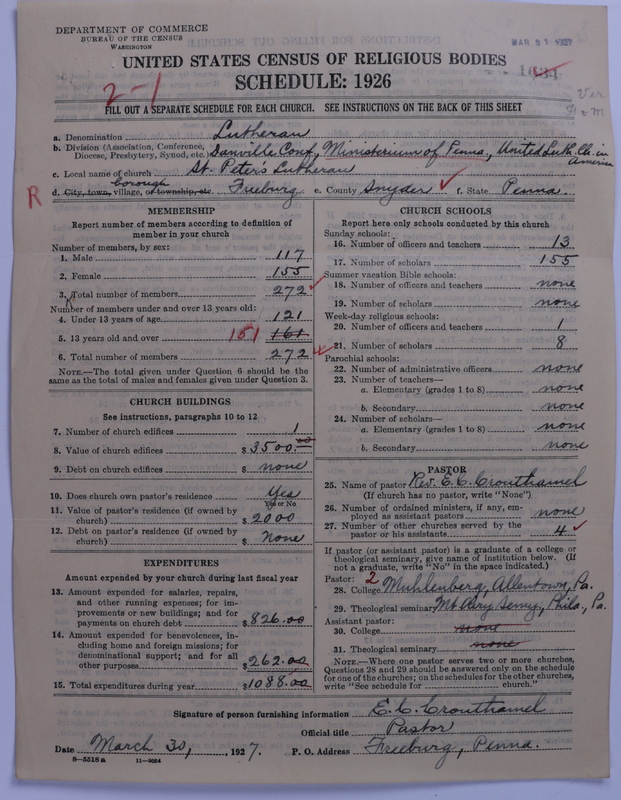 DEPARTMENT OF COMMERCE
BUREAU OF THE CENSUS
WASHINGTON
MAR 31 1927
UNITED STATES CENSUS OF RELIGIOUS BODIES
SCHEDULE: 1926
2-1
FILL OUT A SEPARATE SCHEDULE FOR EACH CHURCH. SEE INSTRUCTIONS ON THE BACK OF THIS SHEET
a. Denomination Lutheran
b. Division (Association, Conference, Diocese, Presbytery, Synod, etc.) Danville Conf., Ministerium of Penna., United Luth. Ch. in America
c. Local name of church St. Peter's Lutheran
R d. City, town, village, borough or township, etc. Freeburg e. County Snyder f. State Penna.
MEMBERSHIP
Report number of members according to definition of member in your church
Number of members, by sex:
1. Male 117
2. Female 155
3. Total number of members 272
Number of members under and over 13 years old:
4. Under 13 years of age 121
5. 13 years old and over 151 161
6. Total number of members 272
NOTE.—The total given under Question 6 should be the same as the total of males and females given under Question 3.
CHURCH BUILDINGS
See instructions, paragraphs 10 to 12
7. Number of church edifices 1
8. Value of church edifices $3500.00
9. Debt on church edifices $ none
10. Does church own pastor's residence Yes
Yes or No
11. Value of pastor's residence (if owned by church) $2000
12. Debt on pastor's residence (if owned by church) $ None
EXPENDITURES
Amount expended by your church during last fiscal year
13. Amount expended for salaries, repairs, and other running expenses; for improvements or new buildings; and for payments on church debt $826.00
14. Amount expended for benevolences, including home and foreign missions; for denominational support; and for all other purposes $262.00
15. Total expenditures during year $1088.00
CHURCH SCHOOLS
Report here only schools conducted by this church
Sunday schools:
16. Number of officers and teachers 13
17. Number of scholars 155
Summer vacation Bible schools:
18. Number of officers and teachers none
19. Number of scholars none
Week-day religious schools:
20. Number of officers and teachers 1
21. Number of scholars 8
Parochial schools:
22. Number of administrative officers none
23. Number of teachers—
a. Elementary (grades 1 to 8) none
b. Secondary none
24. Number of scholars—
a. Elementary (grades 1 to 8) none
b. Secondary none
PASTOR
25. Name of pastor Rev. E. C. Crouthamel
(If church has no pastor, write "None")
26. Number of ordained ministers, if any, employed as assistant pastors none
27. Number of other churches served by the pastor or his assistants 4
If pastor (or assistant pastor) is a graduate of a college or theological seminary, give name of institution below. (If not a graduate, write "No" in the space indicated.)
Pastor: 2
28. College Muhlenberg, Allentown, Pa.
29. Theological seminary Mt. Airy Semy., Phila., Pa.
Assistant pastor:
30. College none
31. Theological seminary none
NOTE.—Where one pastor serves two or more churches, Questions 28 and 29 should be answered only on the schedule for one of the churches; on the schedules for the other churches, write "See schedule for ........ church."
Signature of person furnishing information E. C. Crouthamel
Official title Pastor
Date March 30, 1927. P. O. Address Freeburg, Penna.
8—5518 a 11—9024